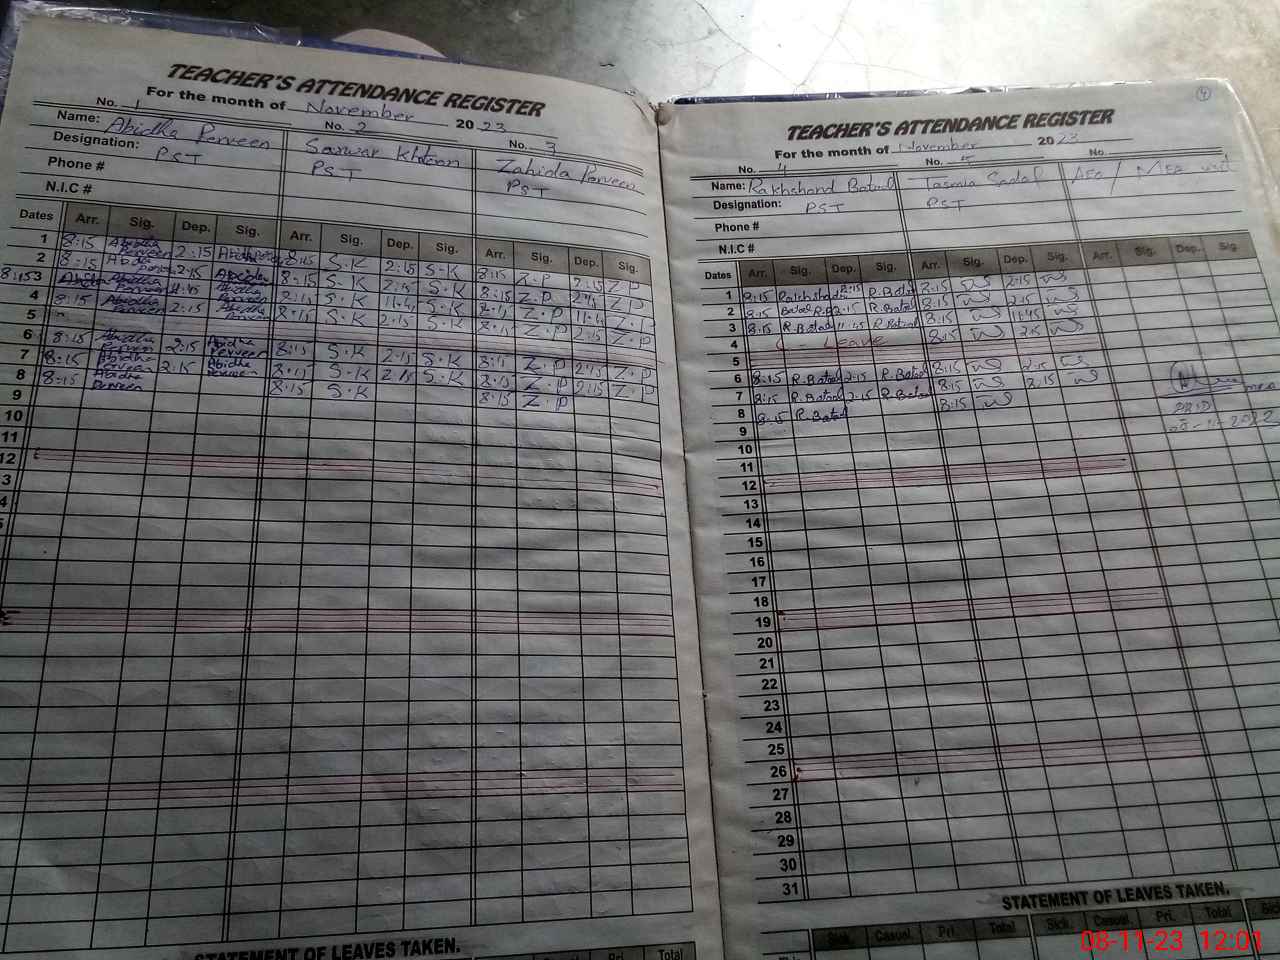 TEACHER'S ATTENDANCE REGISTER
For the month of November 2023
No. 1 No. 2 No. 3
Name: Abidha Perveen Sarwar Khtoon Zahida Perveen
Designation: PST PST PST
Phone #
N.I.C #
Dates Arr. Sig. Dep. Sig. Arr. Sig. Dep. Sig. Arr. Sig. Dep. Sig.
1 8:15 Abidha Perveen 2:15 8:15 S.K 2:15 S.K 8:15 Z.P 2:15 Z.P
2 8:15 2:15 8:15 S.K 2:15 S.K 8:15 Z.P 2:15 Z.P
3 8:15 11:45 8:15 S.K 11:45 S.K 8:15 Z.P 11:45 Z.P
4 8:15 Abidha Perveen 2:15 8:15 S.K 2:15 S.K 8:15 Z.P 2:15 Z.P
5
6 8:15 Abidha Perveen 2:15 Abidha Perveen 8:15 S.K 2:15 S.K 8:15 Z.P 2:15 Z.P
7 8:15 Abidha Perveen 2:15 Abidha Perveen 8:15 S.K 2:15 S.K 8:15 Z.P 2:15 Z.P
8 8:15 Abidha Perveen 8:15 S.K 8:15 Z.P
9
10
11
12
STATEMENT OF LEAVES TAKEN.
Pri. Total
4
TEACHER'S ATTENDANCE REGISTER
For the month of November 2023
No. 4 No. 5 No.
Name: Rakhshand Batool Tasmia Sadaf AEO / MEA visit
Designation: PST PST
Phone #
N.I.C #
Dates Arr. Sig. Dep. Sig. Arr. Sig. Dep. Sig. Arr. Sig. Dep. Sig.
1 8:15 2:15 R.Batool 8:15 2:15
2 8:15 2:15 R.Batool 8:15 11:45
3 8:15 R.Batool 11:45 R.Batool 8:15 2:15
4 C - Leave 8:15 2:15
5
6 8:15 R.Batool 2:15 R.Batool 8:15 2:15
7 8:15 R.Batool 2:15 R.Batool 8:15 2:15
8 8:15 R.Batool 8:15
9
10
11
12
13
14
15
16
17
18
19
20
21
22
23
24
25
26
27
28
29
30
31
STATEMENT OF LEAVES TAKEN.
Sick. Casual. Pri. Total Sick. Casual. Pri. Total
08-11-23 12:01